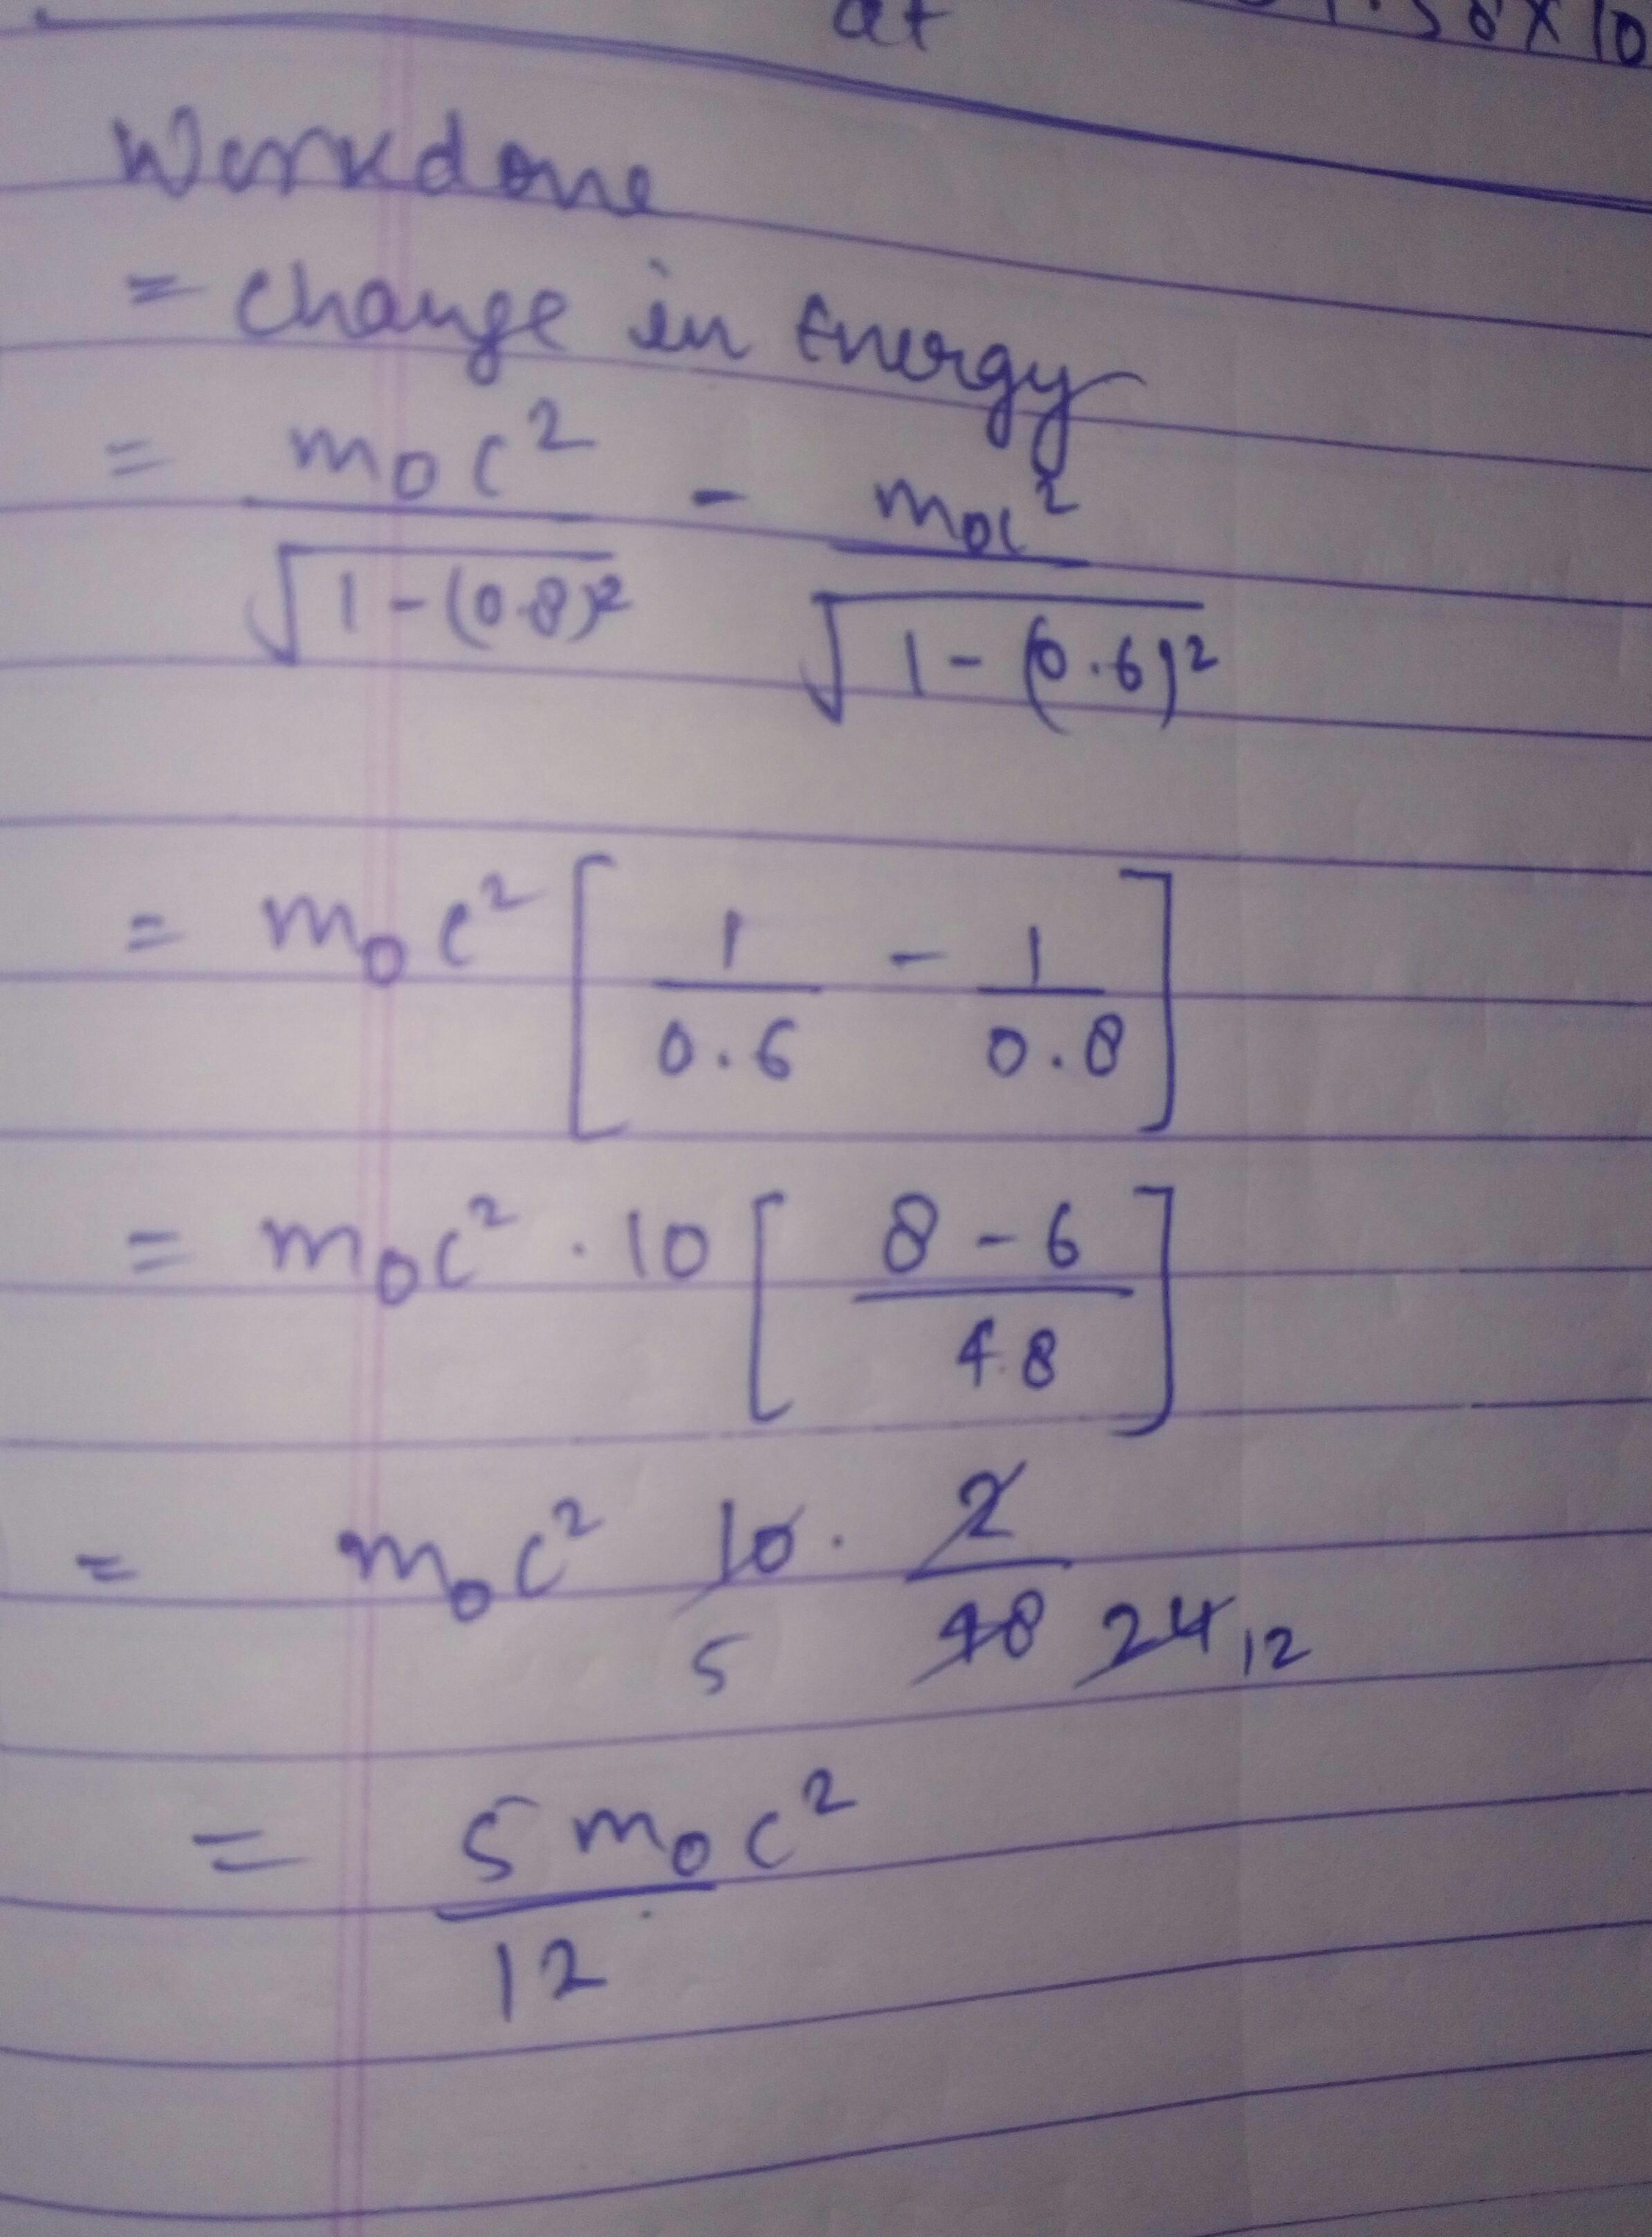 at
Workdone
= Change in Energy
= m₀c² / √(1-(0.8)²) - m₀c² / √(1-(0.6)²)
= m₀c² [ 1/0.6 - 1/0.8 ]
= m₀c² . 10 [ (8-6) / 48 ]
= m₀c² 10 . 2 / 48 24 12
5
= 5m₀c² / 12